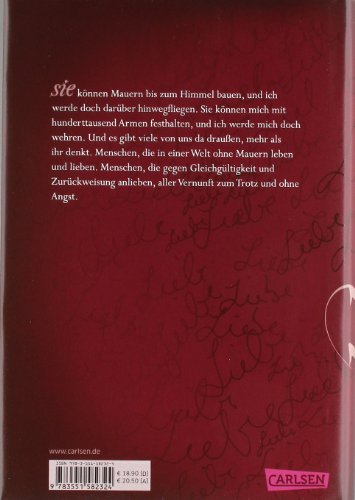 sie können Mauern bis zum Himmel bauen, und ich
werde doch darüber hinwegfliegen. Sie können mich mit
hunderttausend Armen festhalten, und ich werde mich doch
wehren. Und es gibt viele von uns da draußen, mehr als
ihr denkt. Menschen, die in einer Welt ohne Mauern leben
und lieben. Menschen, die gegen Gleichgültigkeit und
Zurückweisung anlieben, aller Vernunft zum Trotz und ohne
Angst.
Liebe
Liebe
Liebe
Liebe
Liebe
Liebe
Liebe
www.carlsen.de
ISBN 978-3-551-58232-4
9783551582324
€ 18.90 [D]
€ 20.50 [A]
CARLSEN